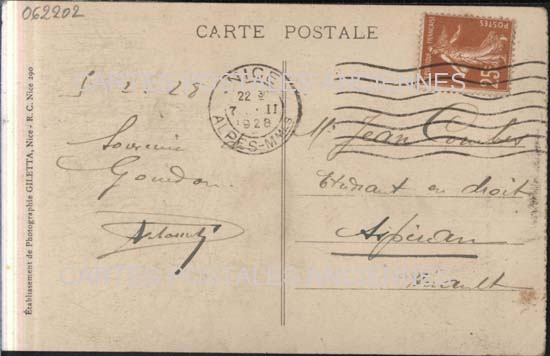 062202
CARTE POSTALE
FRANÇAISE
POSTES
25c
NICE
22
7 · II
1928
ALPES-MMES
CARTES POSTALES ANCIENNES
2 28
Souvenir
Gourdon
Mr Jean Combes
Etudiant en droit
Aspiran
Hérault
CARTES POSTALES ANCIENNES
Établissement de Photographie GILETTA, Nice - R. C. Nice 290